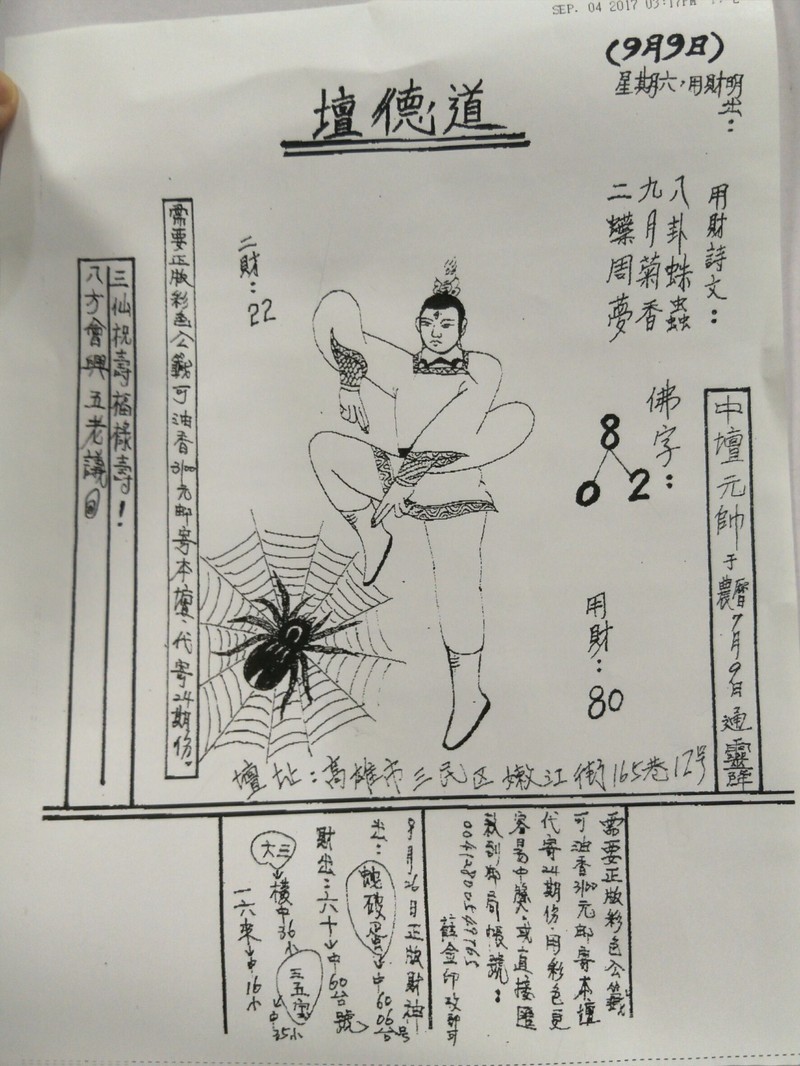 SEP. 04 2017 03:17PM
(9月9日)
星期六，用財明出：
道德壇
用財詩文：
八卦蛛蟲
九月菊香
二蝶周夢
佛字：
8
0 2
中壇元帥于農曆7月9日通靈降
用財：80
二財：22
需要正版彩色公籤可油香3100元邮寄本壇，代寄24期份。
三仙祝壽福祿壽！
八方會興五老議
壇址：高雄市三民区嫩江街165巷12号
需要正版彩色公籤
可油香3100元邮寄本壇
代寄24期份，用彩色更
容易中獎。或直接匯
款到邮局帳號：
8月26日正版財神
出：蛇破蛋↓中60 06台号
財出：六十↓中60台號
大三↓橫中36小
三五宝↓中35小
一六來↓中16小